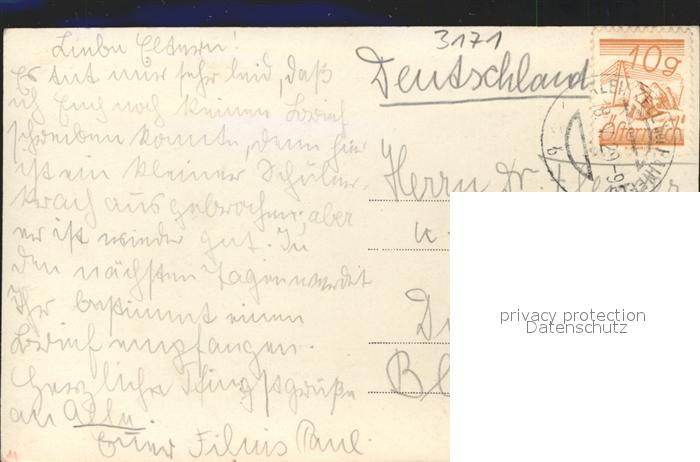 Liebe Eltern!
Es tut mir sehr leid, daß
ich Euch noch keinen Brief
schreiben konnte, denn hier
ist ein kleiner Schüler-
krach ausgebrochen; aber
er ist wieder gut. In
den nächsten Tagen werdet
Ihr bestimmt einen
Brief empfangen.
Herzliche Pfingstgrüße
an Alle.
Euer Paul.
3171
Deutschland
10g
Österreich
Herrn Dr.
u.
Bl
privacy protection
Datenschutz
11